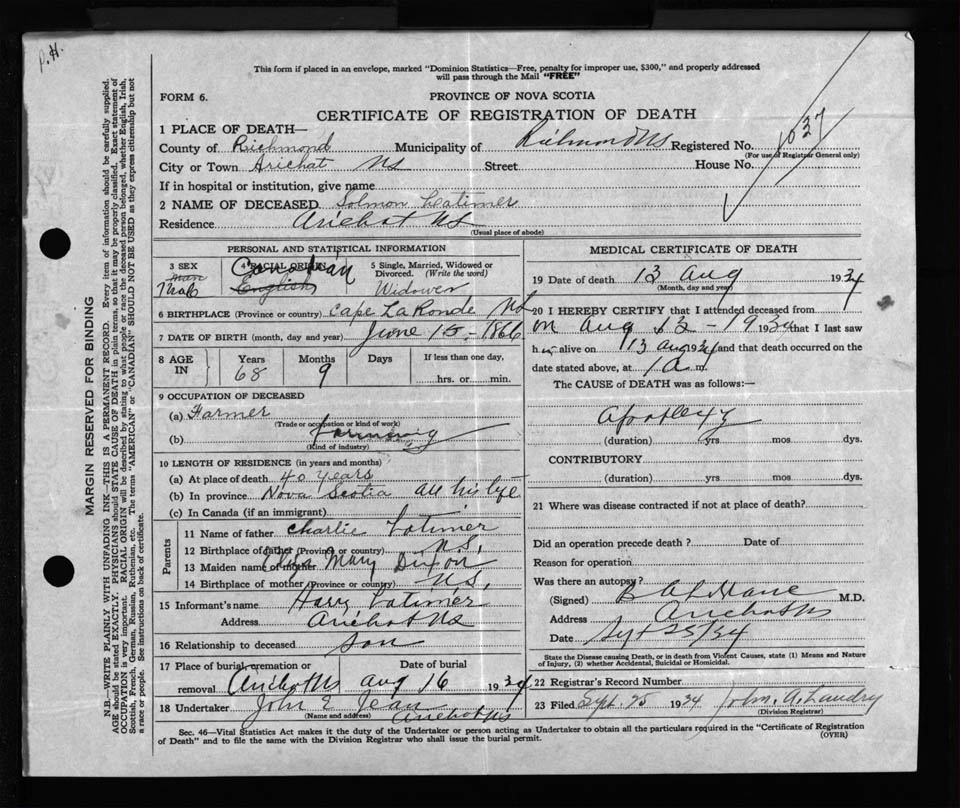 P. H.
This form if placed in an envelope, marked "Dominion Statistics—Free, penalty for improper use, $300," and properly addressed
will pass through the Mail "FREE"
FORM 6.
PROVINCE OF NOVA SCOTIA
CERTIFICATE OF REGISTRATION OF DEATH
1 PLACE OF DEATH—
County of Richmond Municipality of Richmond NS Registered No. 1037
(For use of Registrar General only)
City or Town Arichat NS Street House No.
If in hospital or institution, give name
2 NAME OF DECEASED Solmon Latimer
Residence Arichat NS
(Usual place of abode)
PERSONAL AND STATISTICAL INFORMATION
3 SEX
Male
4 RACIAL ORIGIN
Canadian
English
5 Single, Married, Widowed or Divorced. (Write the word)
Widower
6 BIRTHPLACE (Province or country) Cape La Ronde NS
7 DATE OF BIRTH (month, day and year) June 15, 1866
8 AGE IN
Years Months Days If less than one day,
68 9 hrs. or min.
9 OCCUPATION OF DECEASED
(a) Farmer
(Trade or occupation or kind of work)
(b) farming
(Kind of industry)
10 LENGTH OF RESIDENCE (in years and months)
(a) At place of death 40 years
(b) In province Nova Scotia all his life
(c) In Canada (if an immigrant)
Parents
11 Name of father Charlie Latimer
12 Birthplace of father (Province or country) NS,
13 Maiden name of mother Mary Dixon
14 Birthplace of mother (Province or country) NS,
15 Informant's name Harry Latimer
Address Arichat NS
16 Relationship to deceased son
17 Place of burial, cremation or removal Arichat NS
Date of burial
Aug 16 1934
18 Undertaker John E Jean
(Name and address) Arichat NS
MEDICAL CERTIFICATE OF DEATH
19 Date of death 13 Aug 1934
(Month, day and year)
20 I HEREBY CERTIFY that I attended deceased from
on Aug 12 - 1934 that I last saw
him alive on 13 Aug 1934 and that death occurred on the
date stated above, at 1 a m
The CAUSE of DEATH was as follows:—
Apoplexy
(duration) yrs mos dys.
CONTRIBUTORY
(duration) yrs. mos. dys.
21 Where was disease contracted if not at place of death?
Did an operation precede death? Date of
Reason for operation
Was there an autopsy?
(Signed) M.D.
Address Arichat NS
Date Sept 25/34
State the Disease causing Death, or in death from Violent Causes, state (1) Means and Nature of Injury, (2) whether Accidental, Suicidal or Homicidal.
22 Registrar's Record Number
23 Filed Sept. 25 1934 John A. Landry
(Division Registrar)
Sec. 46—Vital Statistics Act makes it the duty of the Undertaker or person acting as Undertaker to obtain all the particulars required in the "Certificate of Registration
of Death" and to file the same with the Division Registrar who shall issue the burial permit.
(OVER)
MARGIN RESERVED FOR BINDING
N.B.—WRITE PLAINLY WITH UNFADING INK—THIS IS A PERMANENT RECORD. Every item of information should be carefully supplied.
AGE should be stated EXACTLY. PHYSICIANS should STATE CAUSE OF DEATH in plain terms, so that it may be properly classified. Exact statement of
OCCUPATION is very important. RACIAL ORIGIN will be described by stating to what people or race the deceased person belonged, whether English, Irish,
Scottish, French, German, Russian, Ruthenian, etc. The terms "AMERICAN" or "CANADIAN" SHOULD NOT BE USED as they express citizenship but not
a race or people. See instructions on back of certificate.